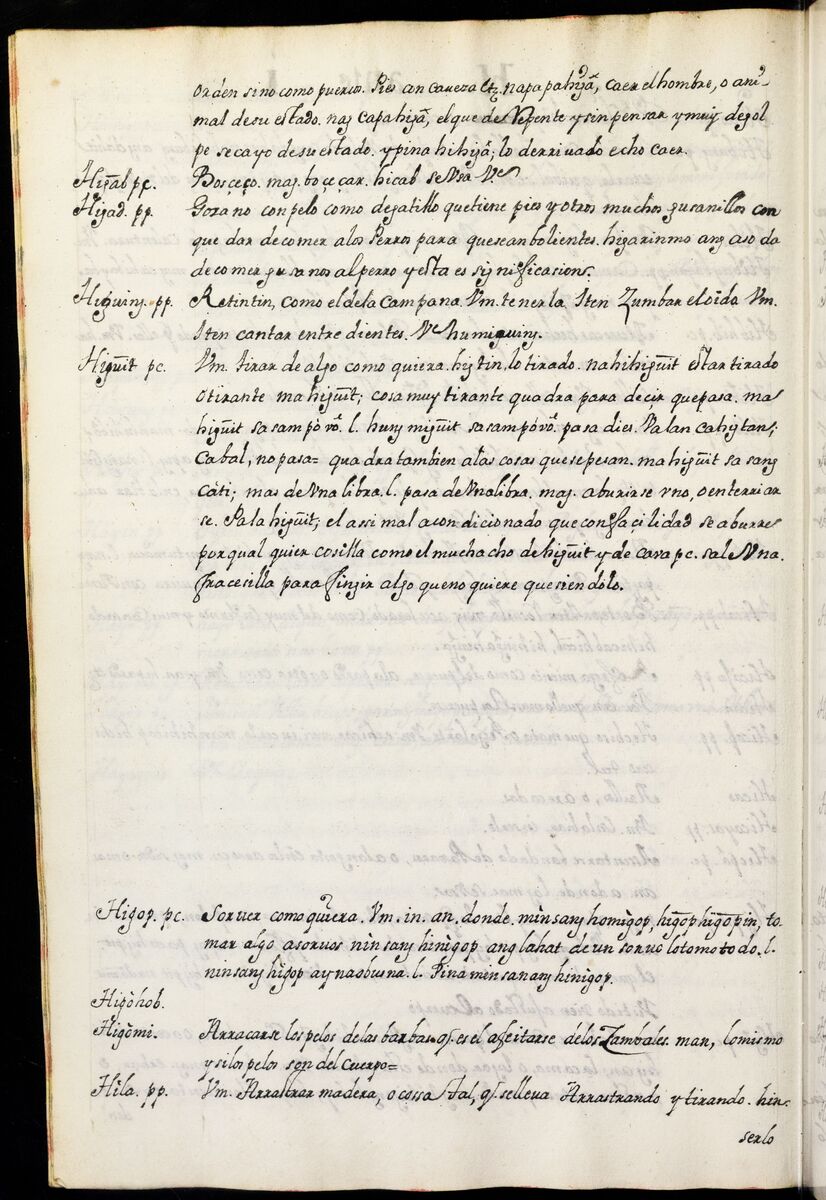 orden sino como puercos. Pies an caveza ett.ª napapahiyã, caer el hombre, o ani-
mal de su estado. nag capahiyã, el que de Repente y sin pensar y muy de gol
pe se cayo de su estado. y pina hihiyã; lo derrivado echo caer.
Higab pc. Bosçeço. mag. boçeçar. hicab se usa Vᵉ
Higad. pp. Gozano con pelo como de gatillo que tiene pies y otros muchos gusanillos con
que dar de comer a los Perros para que sean bolientes. higarin mo ang aso da
de comer gusanos al perro y esta es significasions.
Higuing. pp. Retintin, como el de la Campana. Vm. tenerla Iten Zumbar el oido Vm.
Iten cantar entre dientes. Vᵉ humiguing.
Higuit pc. Vm. tirar de algo como quiera. higtin, lo tirado. nahihiguit estar tirado
o tirante mahiguit; cosa muy tirante quadra para deçir que pasa. ma
higuit sa sampòvo. l. hung miguit sa sampóvo. pasa dies. Valan cahigtan;
Cabal, no pasa= quadra tambien a las cosas que se pesan. mahiguit sa sang
càti; mas de Vna libra. l. pasa de Vna libra. mag. aburirse vno, o enterriar
se. Palahiguit; el assi mal acondicionado que con facilidad se aburre
por qual quier cosilla como el muchacho de higuit y de cara pc. sale Vna
fracecilla para finjir algo que no quiere que siendolo.
Higop. pc. Sorver como quiera. Vm. in. an. donde. minsang homìgop, higop higopin, to-
mar algo a sorvos ninsang hinigop ang lahat de un sorvo lo tomo todo. l.
ninsang higop ay naobus na. l. Pina minsanang hinigop.
Higòhob.
Higòmi. Arracarse los pelos de las barbas q̃. es el afeitarse de los Zambales. man, lo mismo
y si los pelos son del Cuerpo=
Hila. pp. Vm. Arrastrar madera, o cossa tal, q̃. se lleva Arrastrando y tirando. hin-
serlo